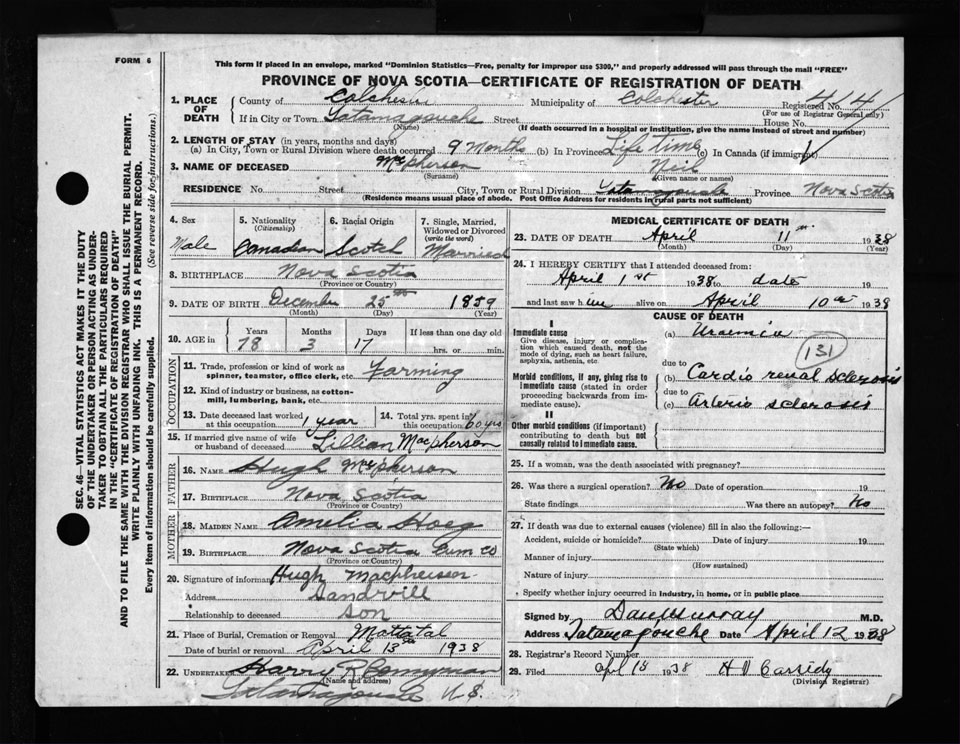 FORM 6
This form if placed in an envelope, marked "Dominion Statistics—Free, penalty for improper use $300," and properly addressed will pass through the mail "FREE"
PROVINCE OF NOVA SCOTIA—CERTIFICATE OF REGISTRATION OF DEATH
SEC. 46—VITAL STATISTICS ACT MAKES IT THE DUTY
OF THE UNDERTAKER OR PERSON ACTING AS UNDER-
TAKER TO OBTAIN ALL THE PARTICULARS REQUIRED
IN THE "CERTIFICATE OF REGISTRATION OF DEATH"
AND TO FILE THE SAME WITH THE DIVISION REGISTRAR WHO SHALL ISSUE THE BURIAL PERMIT.
WRITE PLAINLY WITH UNFADING INK. THIS IS A PERMANENT RECORD.
Every item of information should be carefully supplied. (See reverse side for instructions.)
1. PLACE OF DEATH County of Colchester Municipality of Colchester Registered No. 441
(For use of Registrar General only)
If in City or Town Tatamagouche Street House No.
(Name) (If death occurred in a hospital or institution, give the name instead of street and number)
2. LENGTH OF STAY (in years, months and days)
(a) In City, Town or Rural Division where death occurred 9 Months (b) In Province Life time (c) In Canada (if immigrant)
3. NAME OF DECEASED McPherson Neil
(Surname) (Given name or names)
RESIDENCE No. Street City, Town or Rural Division Tatamagouche Province Nova Scotia
(Residence means usual place of abode. Post Office Address for residents in rural parts not sufficient)
4. Sex 5. Nationality (Citizenship) 6. Racial Origin 7. Single, Married, Widowed or Divorced (write the word)
Male Canadian Scotch Married
8. BIRTHPLACE Nova Scotia
(Province or Country)
9. DATE OF BIRTH December 25th 1859
(Month) (Day) (Year)
10. AGE in Years Months Days If less than one day old
78 3 17 hrs. or min.
OCCUPATION
11. Trade, profession or kind of work as spinner, teamster, office clerk, etc. Farming
12. Kind of industry or business, as cotton-mill, lumbering, bank, etc.
13. Date deceased last worked at this occupation 1 year 14. Total yrs. spent in this occupation 60 yrs
15. If married give name of wife or husband of deceased Lillian Macpherson
FATHER
16. NAME Hugh McPherson
17. BIRTHPLACE Nova Scotia
(Province or Country)
MOTHER
18. MAIDEN NAME Amelia Hoeg
19. BIRTHPLACE Nova Scotia Cum Co
(Province or Country)
20. Signature of informant Hugh Macpherson
Address Sandvill
Relationship to deceased Son
21. Place of Burial, Cremation or Removal Mattatal
Date of burial or removal April 13th 1938
22. UNDERTAKER Harry
(Name and address)
Tatamagouche N.S.
MEDICAL CERTIFICATE OF DEATH
23. DATE OF DEATH April 11th 1938
(Month) (Day) (Year)
24. I HEREBY CERTIFY that I attended deceased from:
April 1st 1938 to date
and last saw him alive on April 10th 1938
CAUSE OF DEATH
I
Immediate cause (a) Uraemia
Give disease, injury or complication which caused death, not the mode of dying, such as heart failure, asphyxia, asthenia, etc.
131
due to
Morbid conditions, if any, giving rise to immediate cause (stated in order proceeding backwards from immediate cause). (b) Cardio renal sclerosis
due to
(c) Arterio sclerosis
II
Other morbid conditions (if important) contributing to death but not causally related to immediate cause.
25. If a woman, was the death associated with pregnancy?
26. Was there a surgical operation? No Date of operation 19
State findings Was there an autopsy? No
27. If death was due to external causes (violence) fill in also the following:—
Accident, suicide or homicide? Date of injury 19
(State which)
Manner of injury
(How sustained)
Nature of injury
Specify whether injury occurred in industry, in home, or in public place
Signed by Dan Murray M.D.
Address Tatamagouche Date April 12 1938
28. Registrar's Record Number
29. Filed Apl 13 1938 H D Cassidy
(Division Registrar)